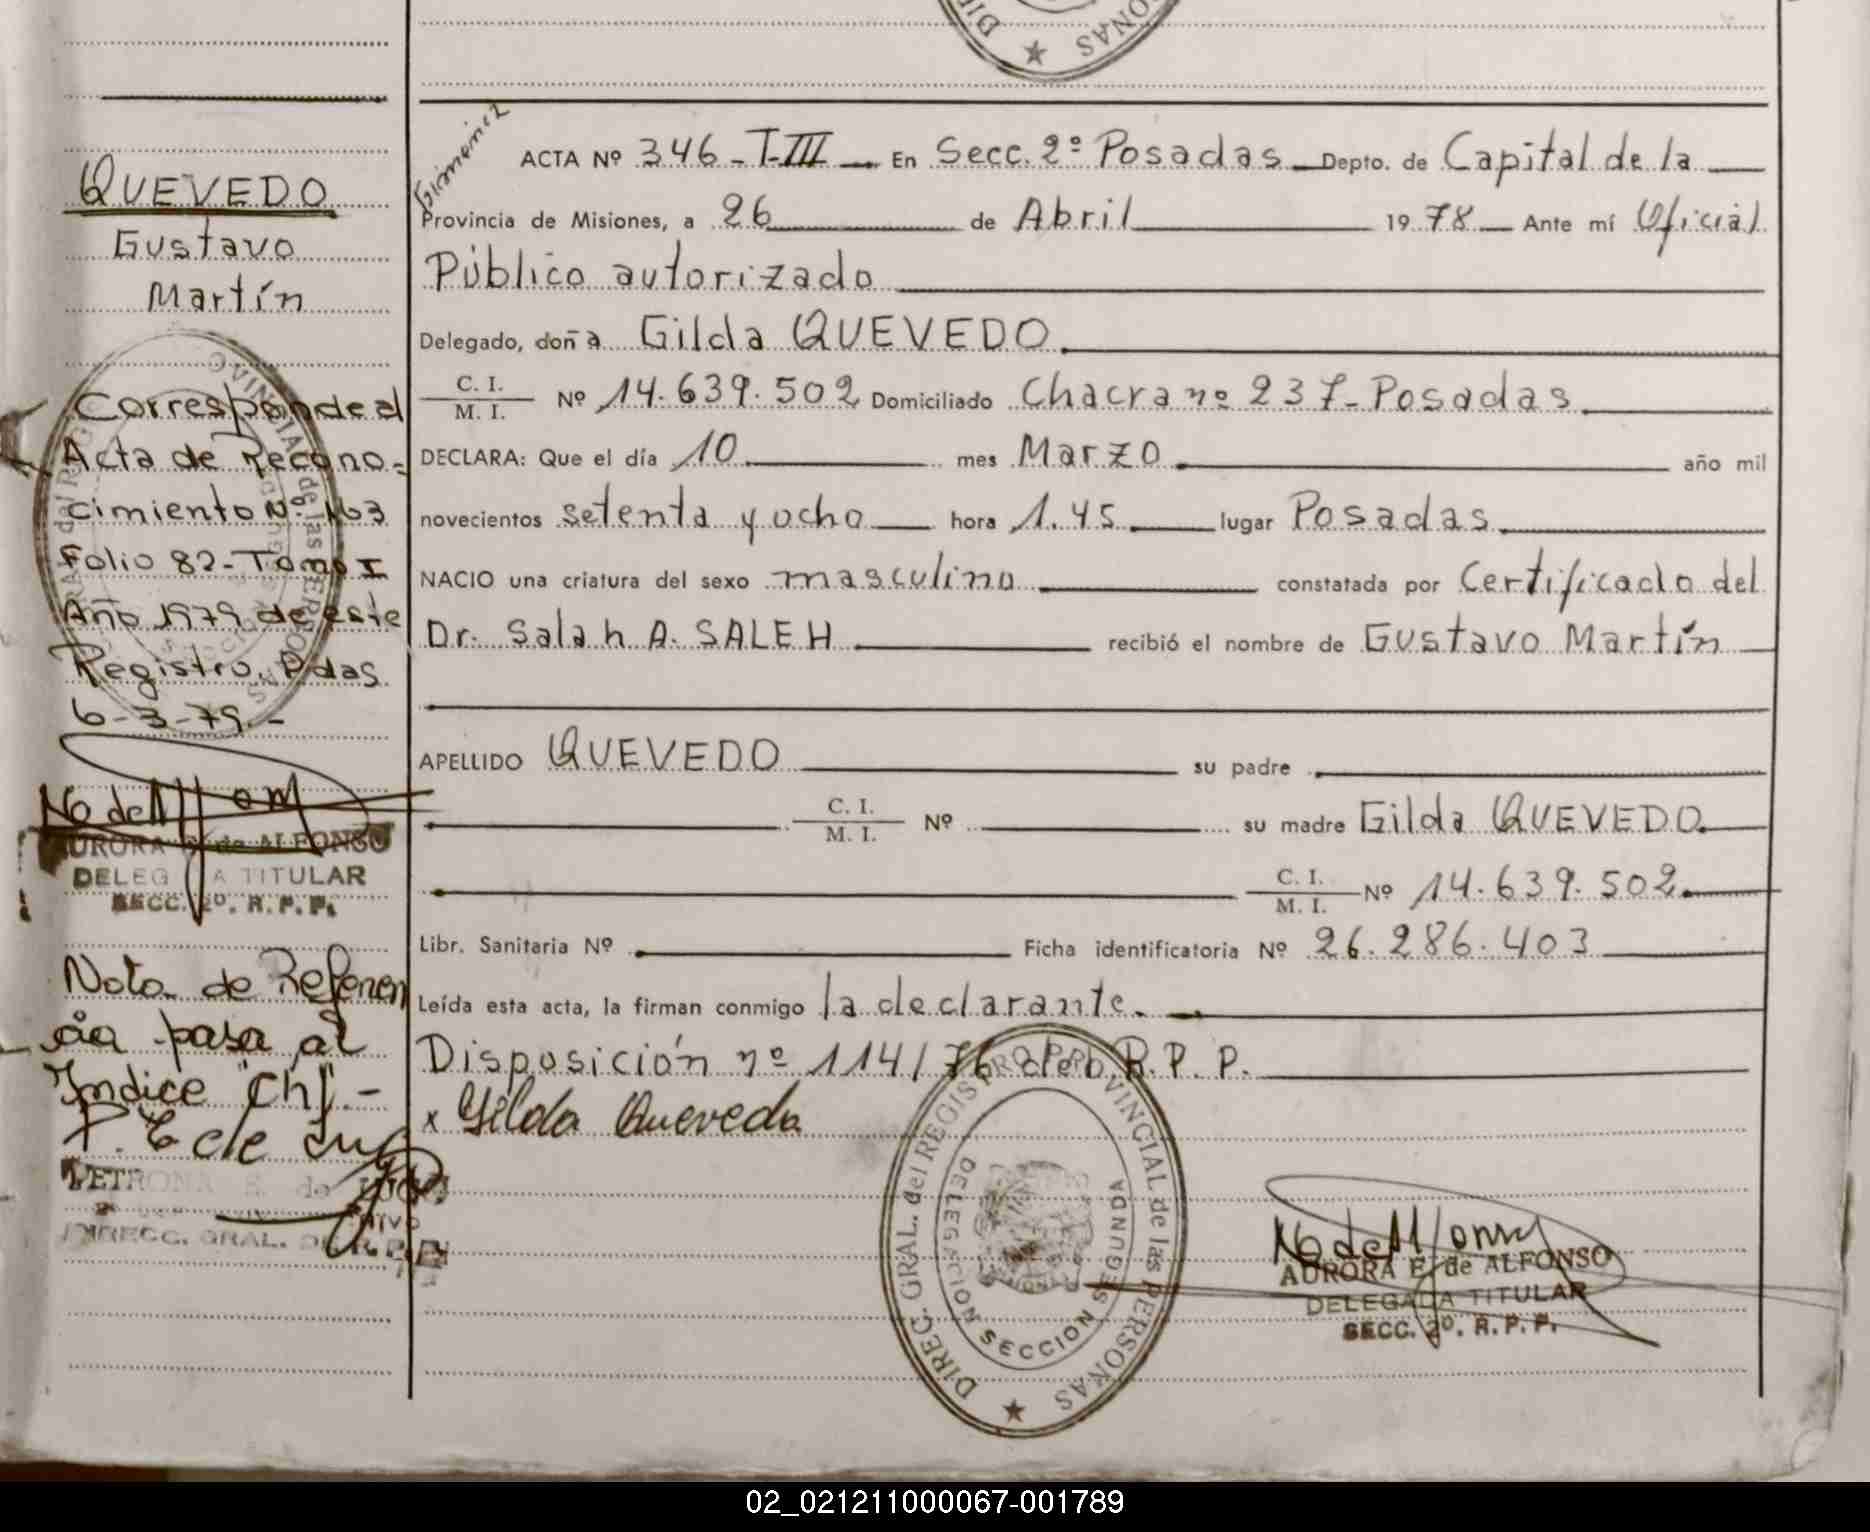 DIREC. PERSONAS
QUEVEDO
Gustavo
Martín
Corresponde al
Acta de Recono-
cimiento Nº 163
Folio 82 - Tomo I
Año 1979 de este
Registro. Pdas.
6-3-79.-
AURORA E. de ALFONSO
DELEGADA TITULAR
SECC. 2º. R. P. P.
Nota de Referen
cia pasa al
Indice "Ch".-
PETRONA E. de LUGO
DIRECC. GRAL. DEL R. P. P.
Gimenez
ACTA Nº 346 - T-III En Secc. 2º Posadas Depto. de Capital de la
Provincia de Misiones, a 26 de Abril 1978 Ante mí Oficial
Público autorizado
Delegado, doña Gilda QUEVEDO
C. I. / M. I. Nº 14.639.502 Domiciliado Chacra nº 237 - Posadas
DECLARA: Que el día 10 mes Marzo año mil
novecientos setenta y ocho hora 1.45 lugar Posadas
NACIO una criatura del sexo masculino constatada por Certificado del
Dr. Salah A. SALEH recibió el nombre de Gustavo Martín
APELLIDO QUEVEDO su padre
C. I. / M. I. Nº su madre Gilda QUEVEDO
C. I. / M. I. Nº 14.639.502
Libr. Sanitaria Nº Ficha identificatoria Nº 26.286.403
Leída esta acta, la firman conmigo la declarante.
Disposición nº 114/76 del R. P. P.
x Gilda Quevedo
DIREC. GRAL. del REGISTRO PROVINCIAL de las PERSONAS
DELEGACION SECCION SEGUNDA
AURORA E. de ALFONSO
DELEGADA TITULAR
SECC. 2º. R. P. P.
02_021211000067-001789